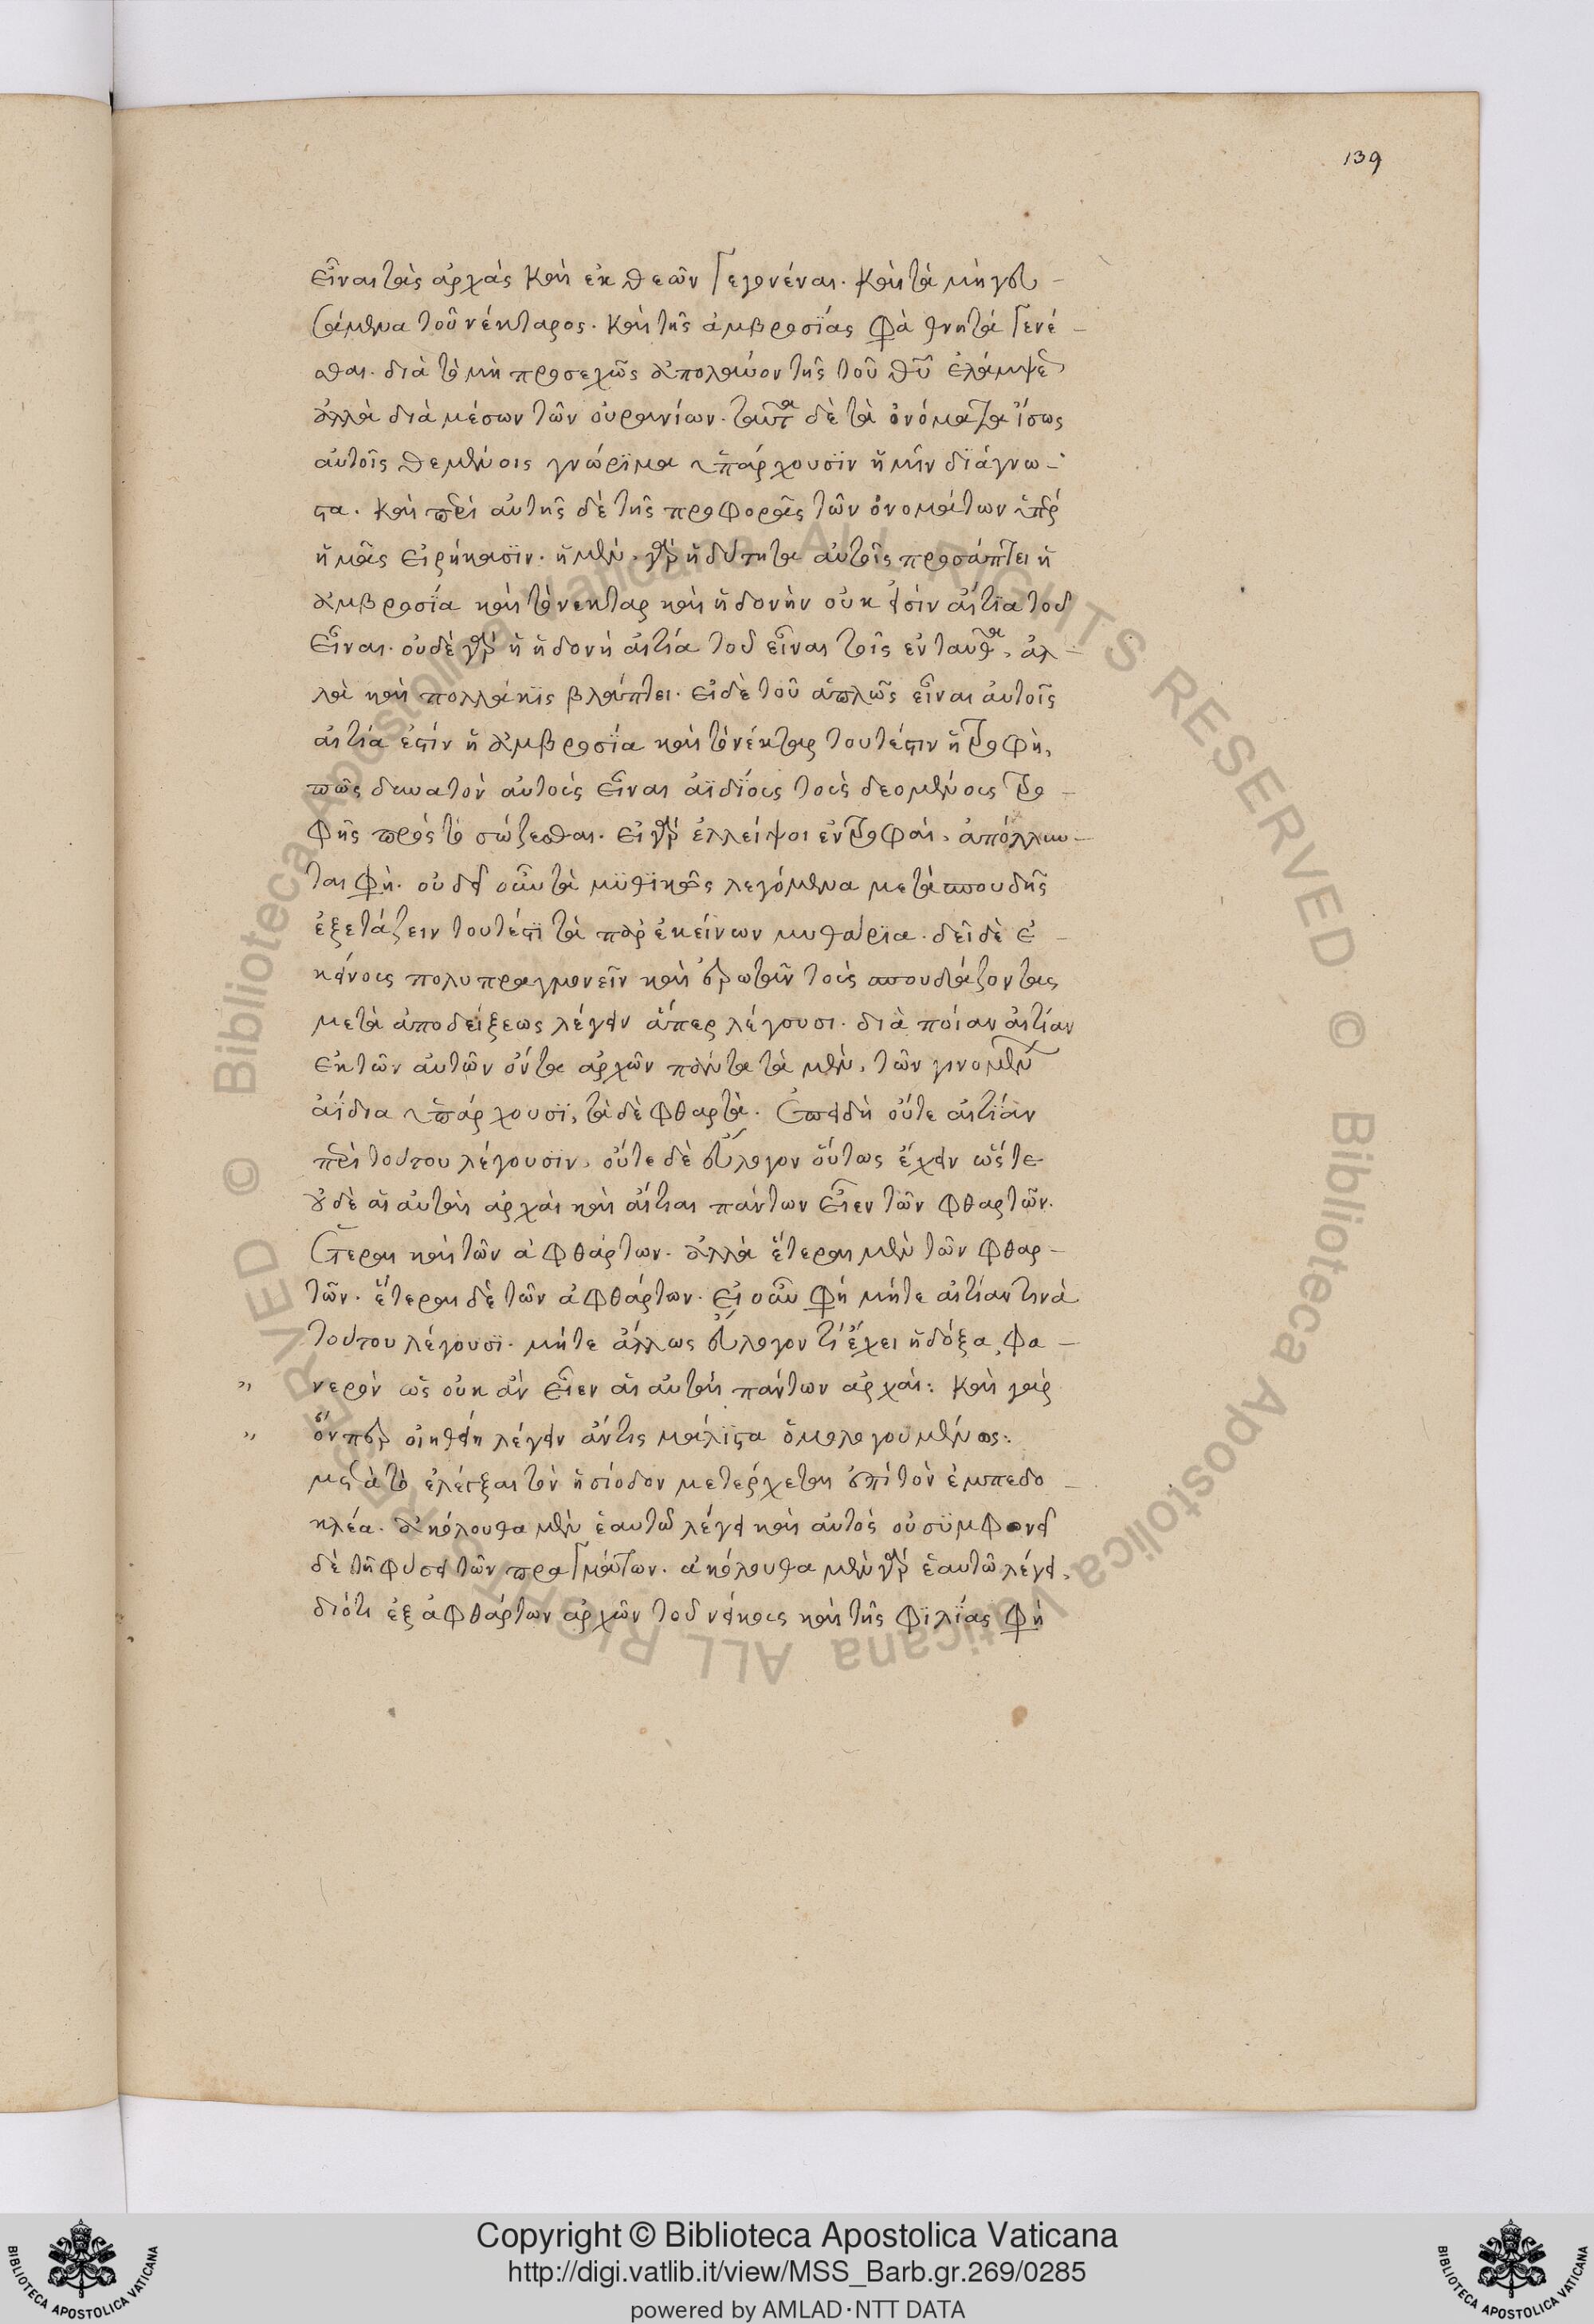 139
εἶναι τὰς ἀρχὰς καὶ ἐκ θεῶν γεγονέναι. καὶ τὰ μὴ γευ-
σάμενα τοῦ νέκταρος. καὶ τῆς ἀμβροσίας φὰ θνητὰ γενέ-
σθαι. διὰ τὸ μὴ προσεχῶς ἀπολαύον τῆς τοῦ θυ ἐλάμψε
ἀλλὰ διὰ μέσων τῶν οὐρανίων. ταῦτα δὲ τὰ ὀνόματα ἴσως
αὐτοῖς θεμένοις γνώριμα ὑπάρχουσϊν ἡμῖν δϊάγνω-
στα. καὶ περὶ αὐτῆς δὲ τῆς προφορᾶς τῶν ὀνομάτων ὑπὲρ
ἡμᾶς εἰρήκασϊν. ἡ μὲν γὰρ ἡδύτητα αὐτοῖς προσάπτει ἡ
ἀμβροσΐα καὶ τὸ νεκταρ καὶ ἡδονὴν οὐκ εἰσὶν αἴτϊα τοῦ
εἶναι. οὐδὲ γὰρ ἡ ἡδονὴ αἰτία τοῦ εἶναι τοῖς ἐνταῦθα, ἀλ-
λὰ καὶ πολλάκϊς βλάπτει. εἰ δὲ τοῦ ἁπλῶς εἶναι αὐτοῖς
αἰτία ἐστίν ἡ ἀμβροσΐα καὶ τὸ νέκταρ τουτέστιν ἡ τροφὴ,
πῶς δυνατὸν αὐτοὺς εἶναι ἀϊδΐους τοὺς δεομένους τρο-
φῆς πρὸς τὸ σώζεσθαι. εἰ γὰρ ἐλλείψοι ἐν τροφαὶ, ἀπόλλυν-
ται φὴ. οὐ δεῖ οὖν τὰ μϋθϊκῶς λεγόμενα μετὰ σπουδῆς
ἐξετάζειν τουτέστϊ τὰ παρ ἐκείνων μυθάρϊα. δεῖ δὲ ἐ-
κείνους πολυπραγμονεῖν καὶ ἐρωτᾶν τοὺς σπουδάζοντας
μετὰ ἀποδείξεως λέγειν ἅπερ λέγουσι. διὰ ποίαν αἰτίαν
ἐκ τῶν αὐτῶν ὄντα ἀρχῶν πάντα τὰ μὲν, τῶν γινομένων
ἀΐδια ὑπάρχουσϊ, τὰ δὲ φθαρτὰ. ἐπειδὴ οὔτε αἰτΐαν
περὶ τούτου λέγουσϊν, οὔτε δὲ εὔλογον οὕτως ἔχειν ὥστε
οὐδὲ αἱ αὐταὶ ἀρχαὶ καὶ αἴτιαι πάντων εἶεν τῶν φθαρτῶν.
ἕτεραι καὶ τῶν ἀφθάρτων. ἀλλὰ ἕτεραι μὲν τῶν φθαρ-
τῶν. ἕτεραι δὲ τῶν ἀφθάρτων. εἰ οὖν φὴ μήτε αἰτίαν τινὰ
τούτου λέγουσϊ. μήτε ἄλλως εὔλογον τὶ ἔχει ἡ δόξα, φα-
νερὸν ὡς οὐκ ἂν εἶεν αἱ αὐταὶ πάντων ἀρχαὶ: καὶ γὰρ
ὅνπερ οἰηθείη λέγειν ἄν τις μάλϊστα ὁμολογουμένως:
μετὰ τὸ ἐλέγξαι τὸν ἡσίοδον μετέρχεται ἐπὶ τὸν ἐμπεδο-
κλέα. ἀκόλουθα μὲν ἑαυτῶ λέγει καὶ αὐτὸς οὐ σϋμφωνεῖ
δὲ τῇ φύσει τῶν πραγμάτων. ἀκόλουθα μὲν γὰρ ἑαυτῶ λέγει,
διότι ἐξ ἀφθάρτων ἀρχῶν τοῦ νείκους καὶ τῆς φϊλΐας φὴ
Copyright © Biblioteca Apostolica Vaticana
http://digi.vatlib.it/view/MSS_Barb.gr.269/0285
powered by AMLAD·NTT DATA